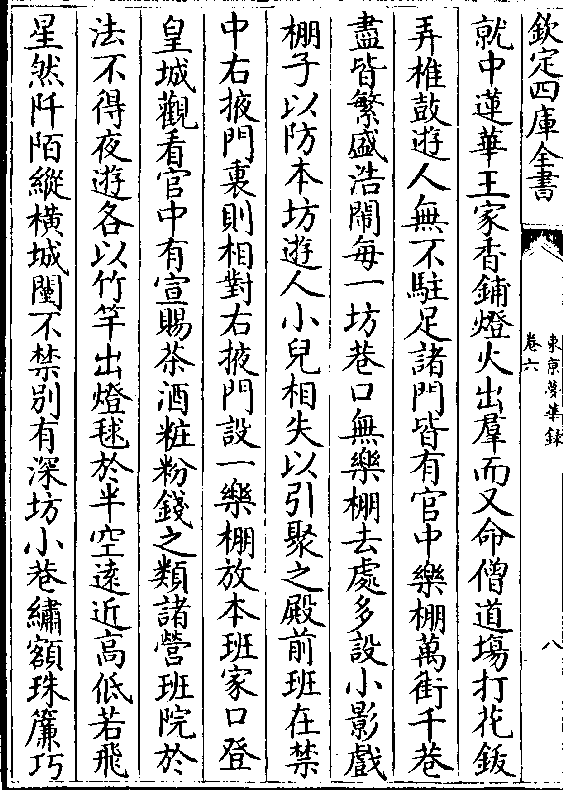 欽定四庫全書
東京夢華錄
卷六
八
就中蓮華王家香鋪燈火出羣而又命僧道場打花鈸
弄椎鼓遊人無不駐足諸門皆有官中樂棚萬街千巷
盡皆繁盛浩鬧每一坊巷口無樂棚去處多設小影戲
棚子以防本坊遊人小兒相失以引聚之殿前班在禁
中右掖門裏則相對右掖門設一樂棚放本班家口登
皇城觀看官中有宣賜茶酒粧粉錢之類諸營班院於
法不得夜遊各以竹竿出燈毬於半空遠近高低若飛
星然阡陌縱橫城闉不禁別有深坊小巷繡額珠簾巧